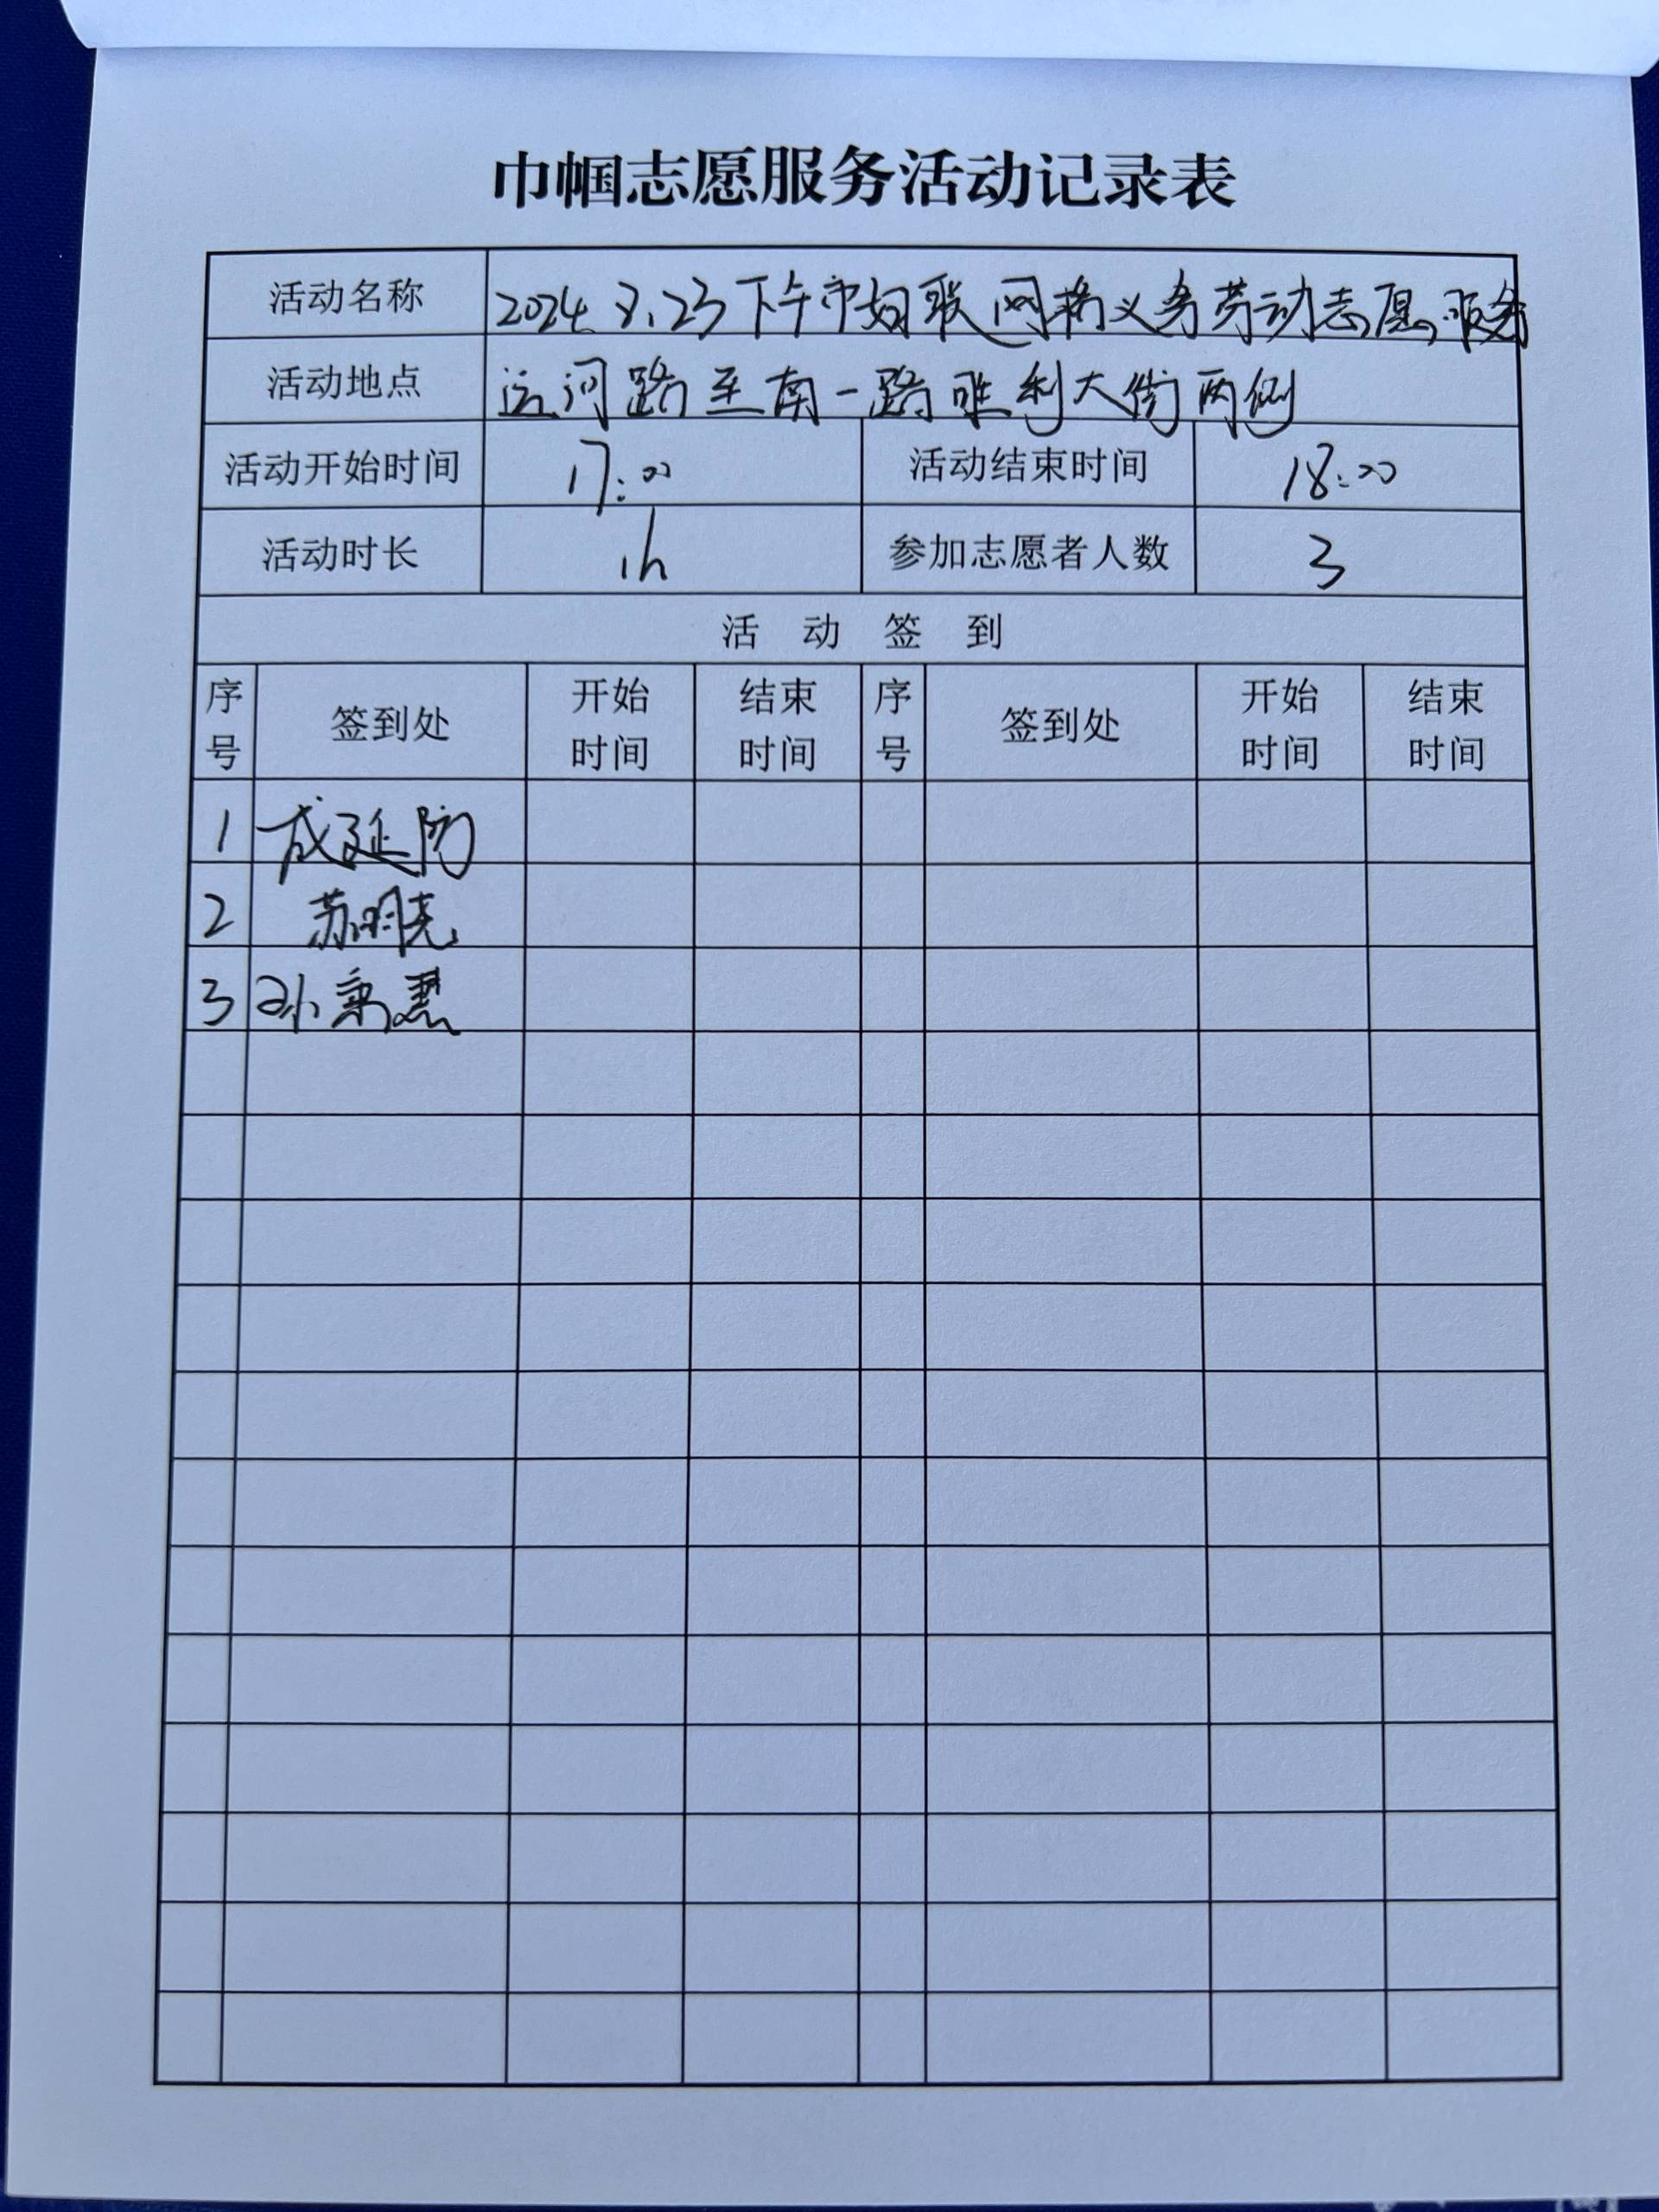 巾帼志愿服务活动记录表
活动名称 2024.8.23下午市妇联网格义务劳动志愿服务
活动地点 运河路至南一路胜利大街两侧
活动开始时间 17:00 活动结束时间 18:00
活动时长 1h 参加志愿者人数 3
活动签到
序号 签到处 开始时间 结束时间 序号 签到处 开始时间 结束时间
1 成延
2 苏明亮
3 孙